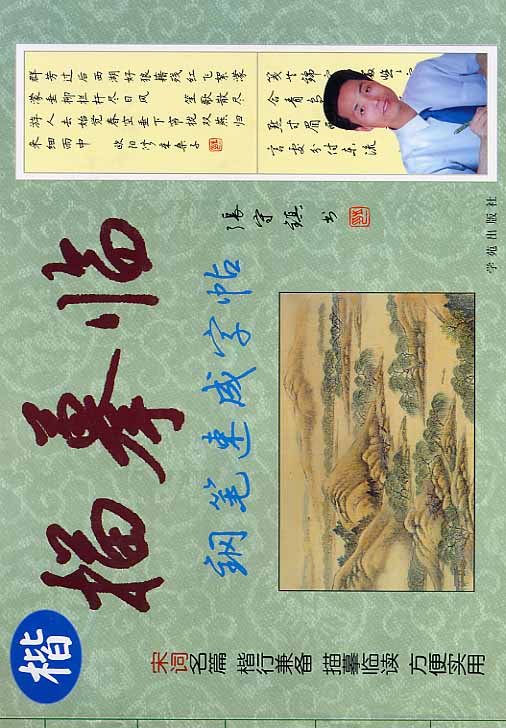 群芳过后西湖好狼藉残红飞絮濛
濛垂柳拦杆尽日风 笙歌散尽
游人去始觉春空垂下帘栊双燕归
来细雨中 欧阳修采桑子
描摹临
張守鎮书
钢笔速成字帖
楷
宋词名篇 楷行兼备 描摹临读 方便实用
学苑出版社